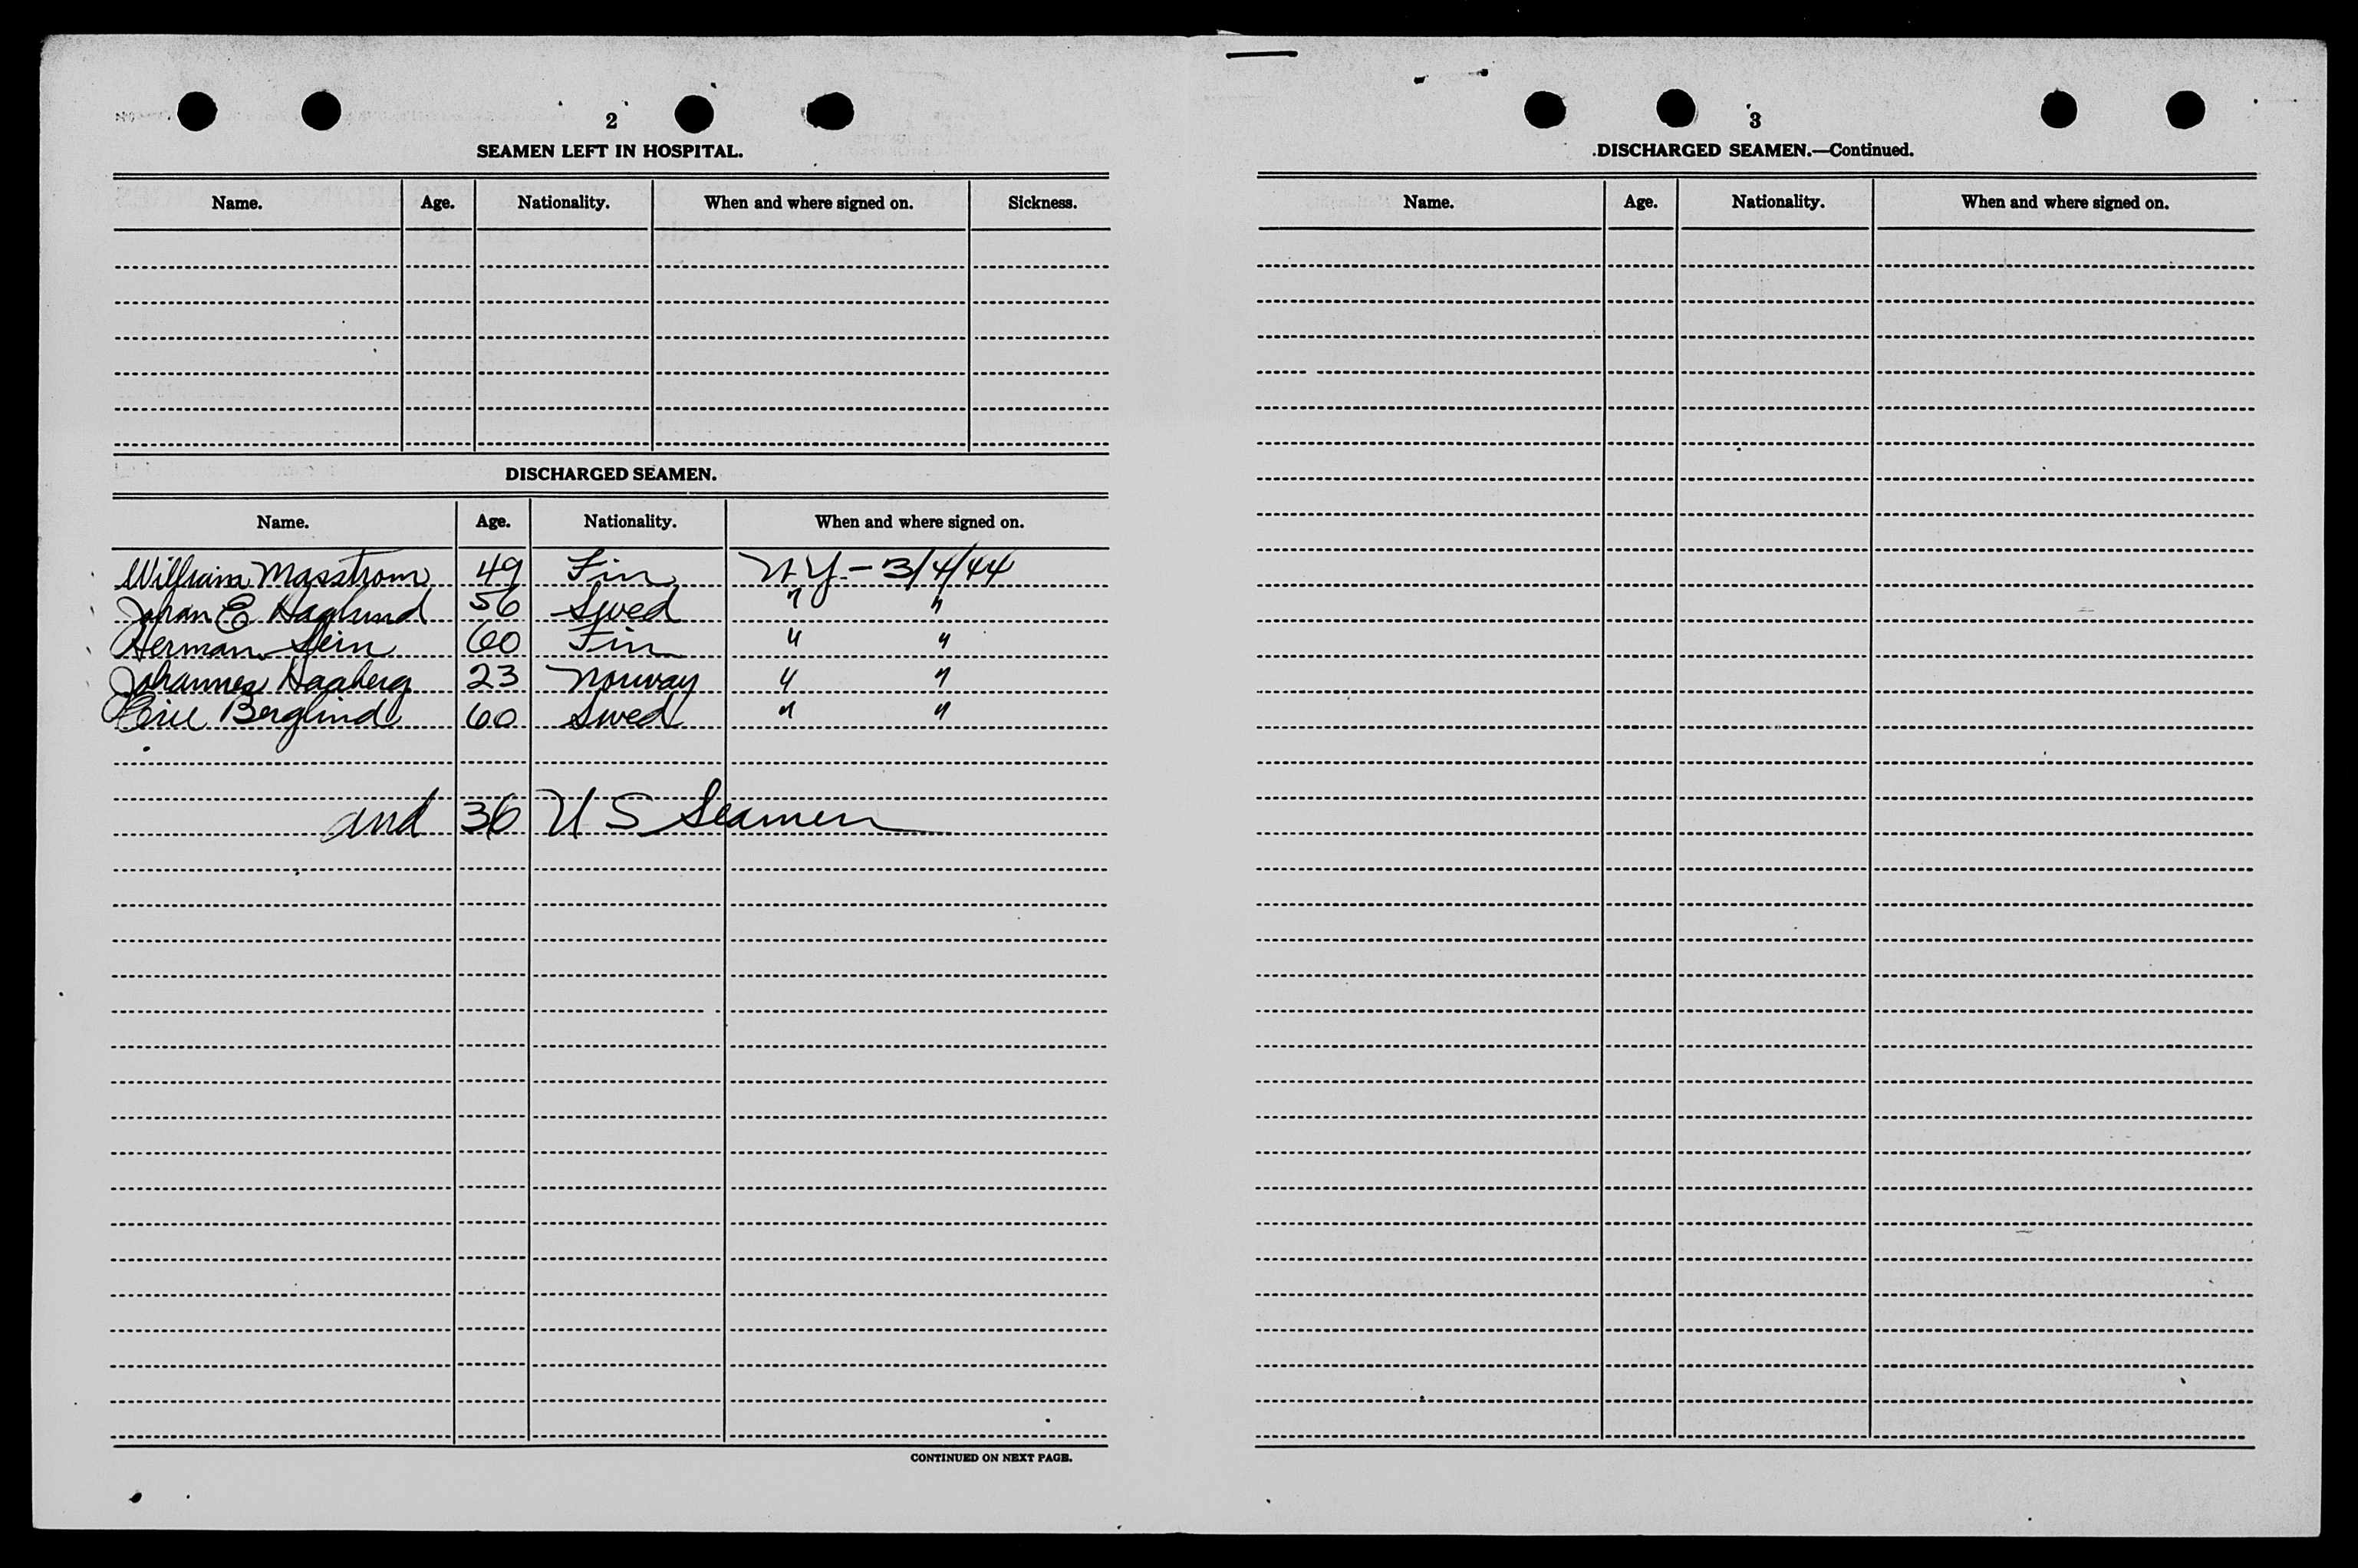 2
SEAMEN LEFT IN HOSPITAL.
Name. Age. Nationality. When and where signed on. Sickness.
DISCHARGED SEAMEN.
Name. Age. Nationality. When and where signed on.
William Masstrom 49 Fin NY - 3/4/44
Johan E Haglund 56 Swed " "
Herman 60 Fin " "
Johannes Hagberg 23 Norway " "
Eric Berglind 60 Swed " "
and 36 U S Seamen
CONTINUED ON NEXT PAGE.
3
DISCHARGED SEAMEN.—Continued.
Name. Age. Nationality. When and where signed on.